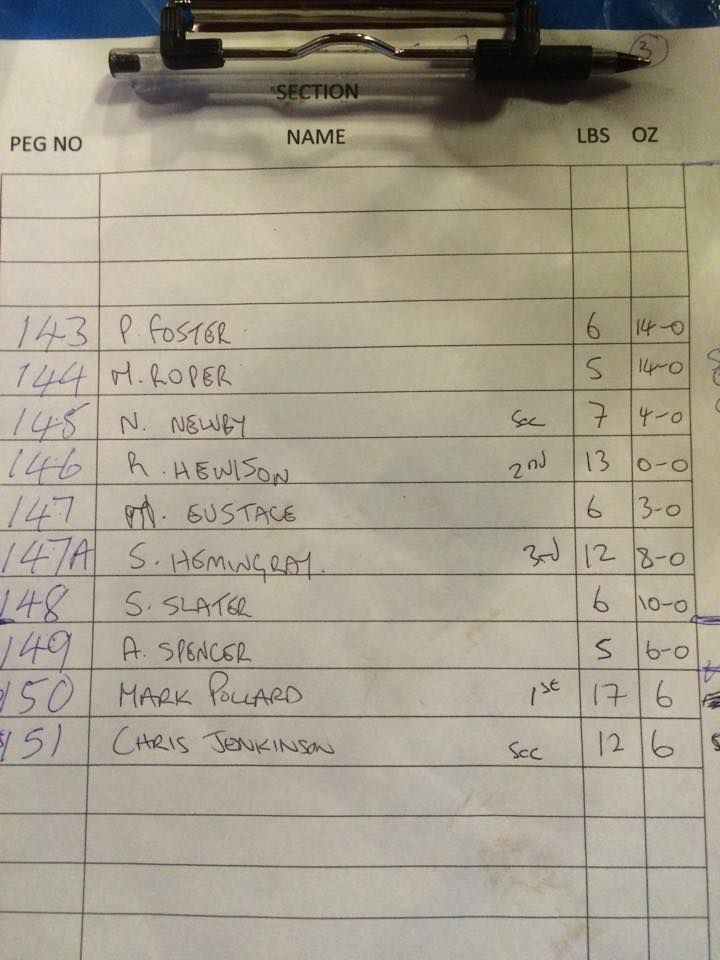 3
SECTION
PEG NO NAME LBS OZ
143 P. FOSTER 6 14-0
144 M. ROPER 5 14-0
145 N. NEWBY Sec 7 4-0
146 R. HEWISON 2nd 13 0-0
147 EUSTACE 6 3-0
147A S. HEMINGRAY. 3rd 12 8-0
148 S. SLATER 6 10-0
149 A. SPENCER 5 6-0
150 MARK POLLARD 1st 17 6
151 CHRIS JENKINSON Sec 12 6